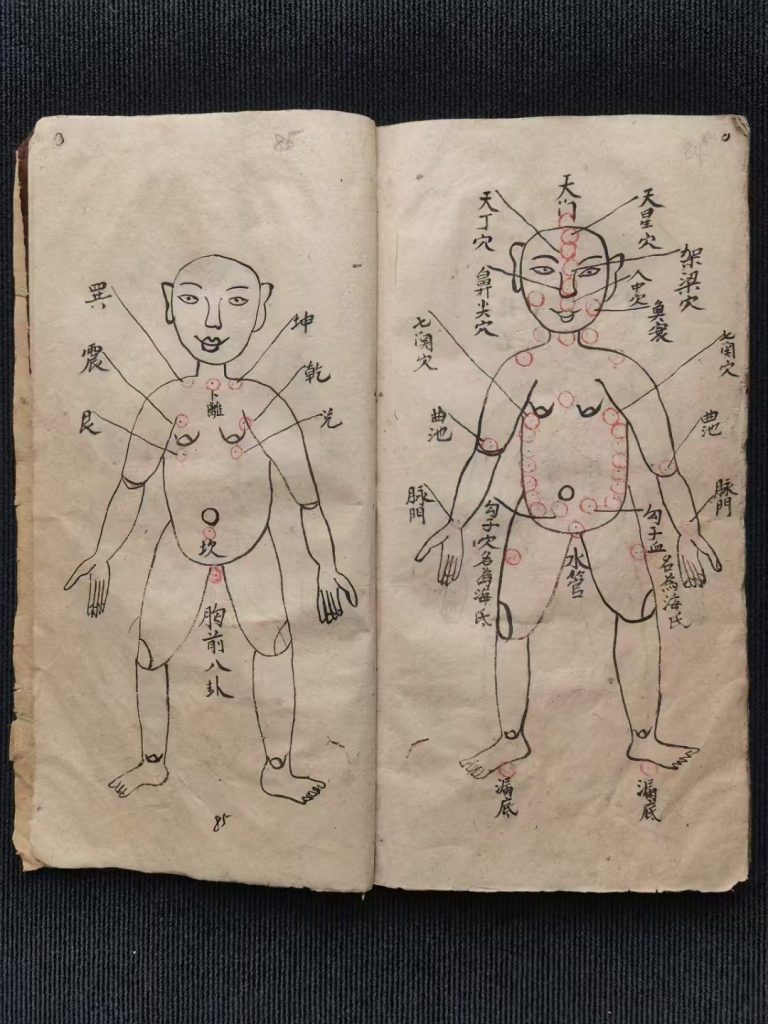 84
天门
天星穴
天丁穴
架梁穴
人中穴
鼻尖穴
七関穴
七関穴
曲池
曲池
脉門
脉門
勾子血
名為海氏
勾子穴名為海氏
水管
漏底
漏底
85
坤
巽
乾
震
兑
艮
卜離
坎
胸前八卦
85